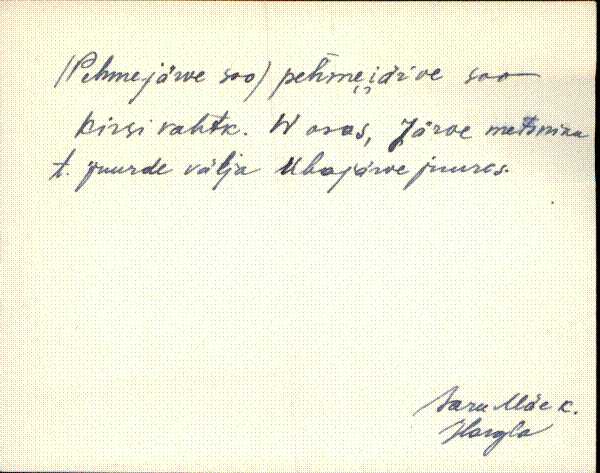 (Pehmejärve soo) pehmejärve soo
Kirsi vahtk. W osas, Järve metsniku
t. juurde välja Ubajärve juures.
Saru Mäe k.
Hargla